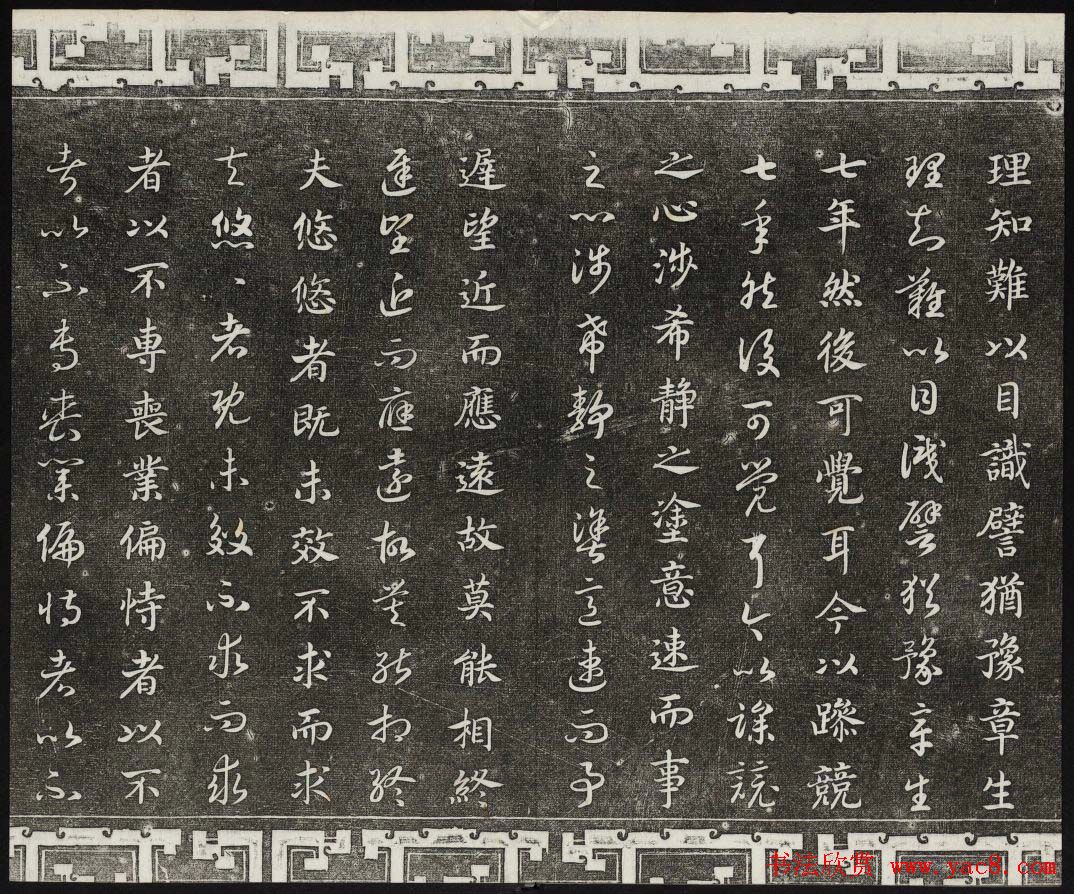 理知難以目識譬猶豫章生
理知難以目識譬猶豫章生
七年然後可覺耳今以躁競
七年然後可覺耳今以躁競
之心涉希静之塗意速而事
之心涉希静之塗意速而事
遲望近而應遠故莫能相終
遲望近而應遠故莫能相終
夫悠悠者既未效不求而求
夫悠〻者既未效不求而求
者以不專喪業偏恃者以不
者以不專喪業偏恃者以不
书法欣赏 www.yac8.com